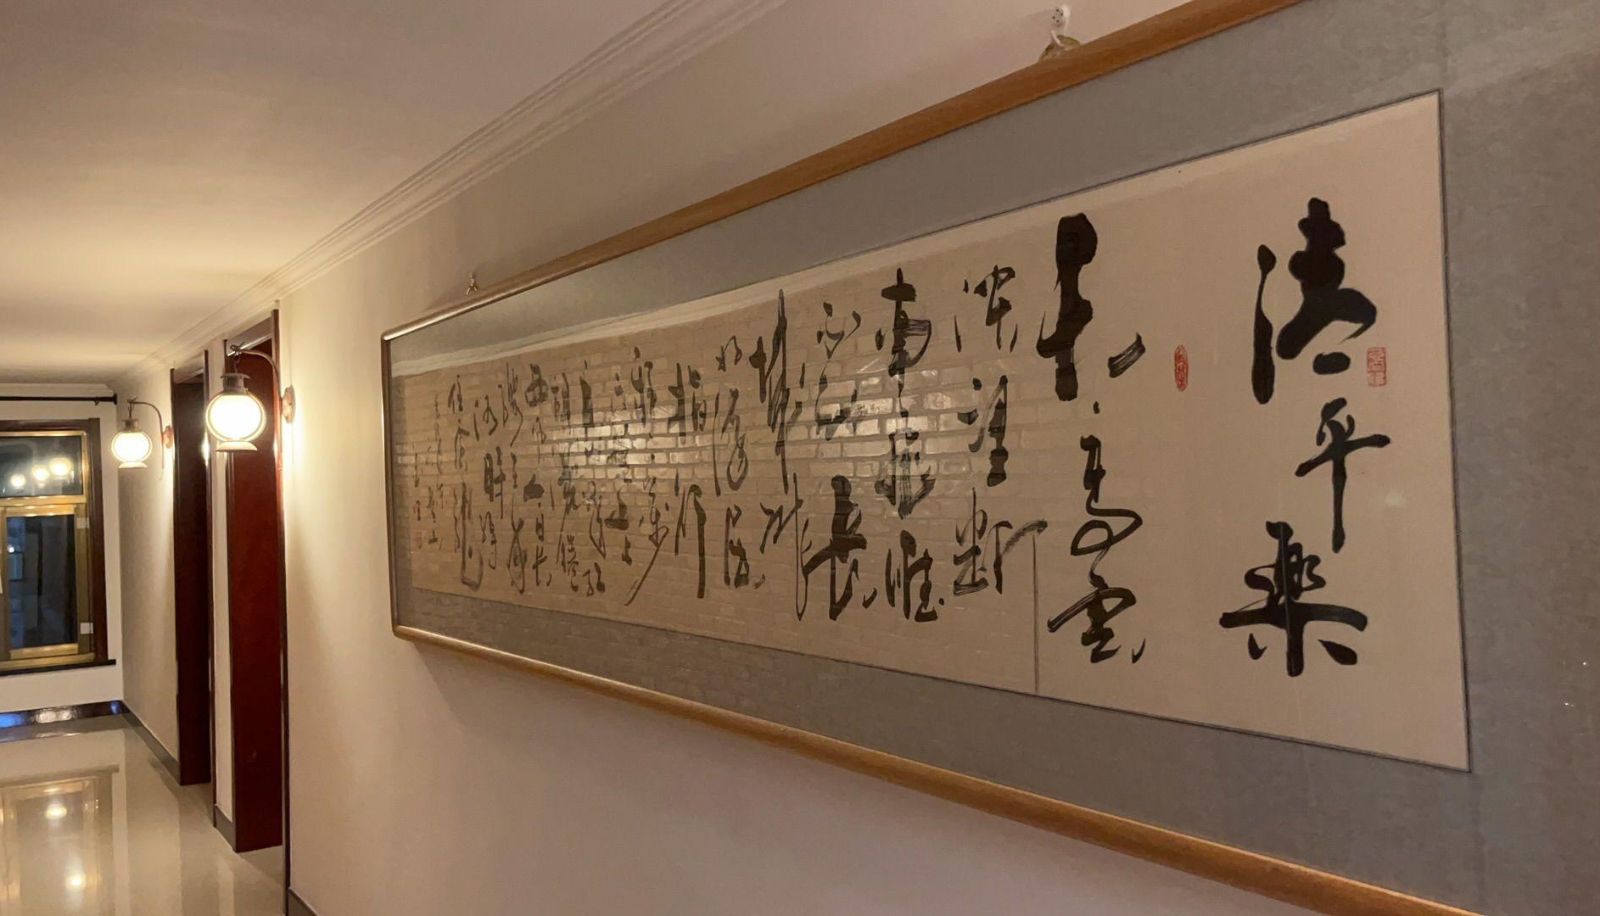 清平樂
天高雲
淡望斷
南飛雁
不到長
城非
好漢屈
指行
程二萬
六盤山上
高峰紅
旗漫捲
西風今日長
纓在手
何時縛
住蒼龍